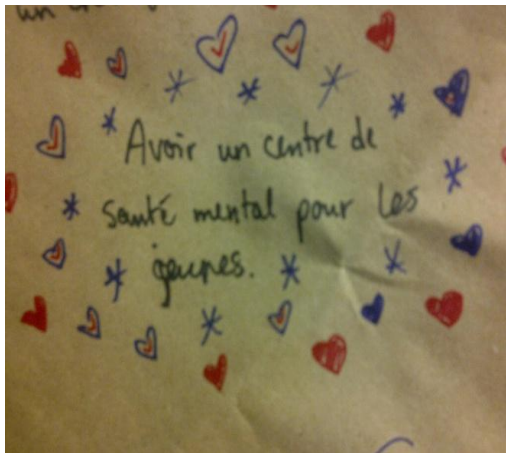 un
Avoir un centre de
santé mental pour les
jeunes.